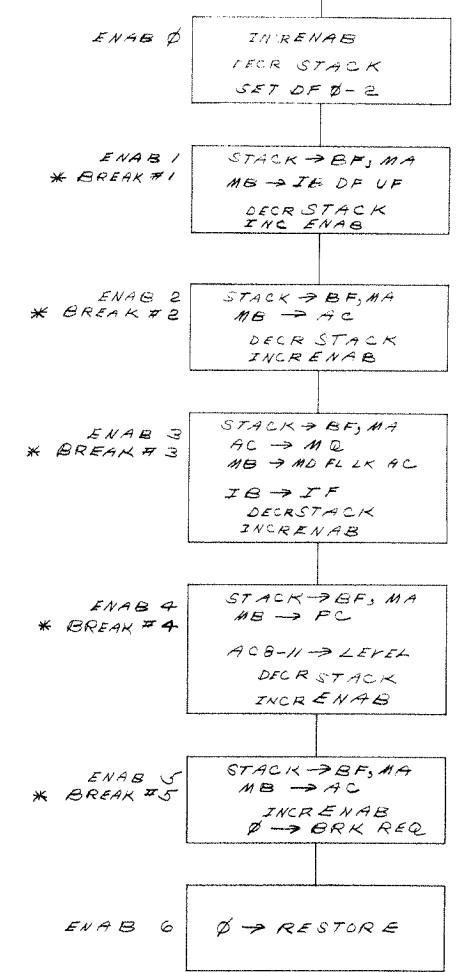 ENAB Ø
INCRENAB
DECR STACK
SET DF Ø-2
ENAB 1
* BREAK #1
STACK → BF, MA
MB → IB DF UF
DECR STACK
INC ENAB
ENAB 2
* BREAK #2
STACK → BF, MA
MB → AC
DECR STACK
INCRENAB
ENAB 3
* BREAK #3
STACK → BF, MA
AC → MQ
MB → MD FL LK AC
IB → IF
DECRSTACK
INCRENAB
ENAB 4
* BREAK #4
STACK → BF, MA
MB → PC
AC8-11 → LEVEL
DECR STACK
INCR ENAB
ENAB 5
* BREAK #5
STACK → BF, MA
MB → AC
INCR ENAB
Ø → BRK REQ
ENAB 6
Ø → RESTORE